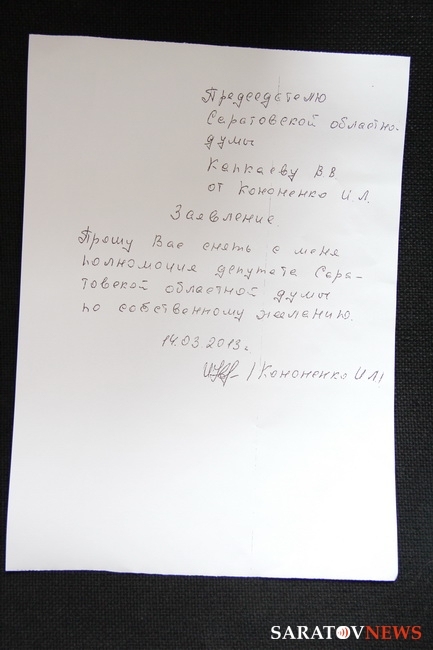 Председателю
Саратовской областно-
думы
Капкаеву В В.
от Кононенко И.Л.
Заявление.
Прошу Вас снять с меня
полномочия депутата Сара-
товской областной думы
по собственному желанию.
14.03.2013г.
/Кононенко И Л/
SARATOVNEWS